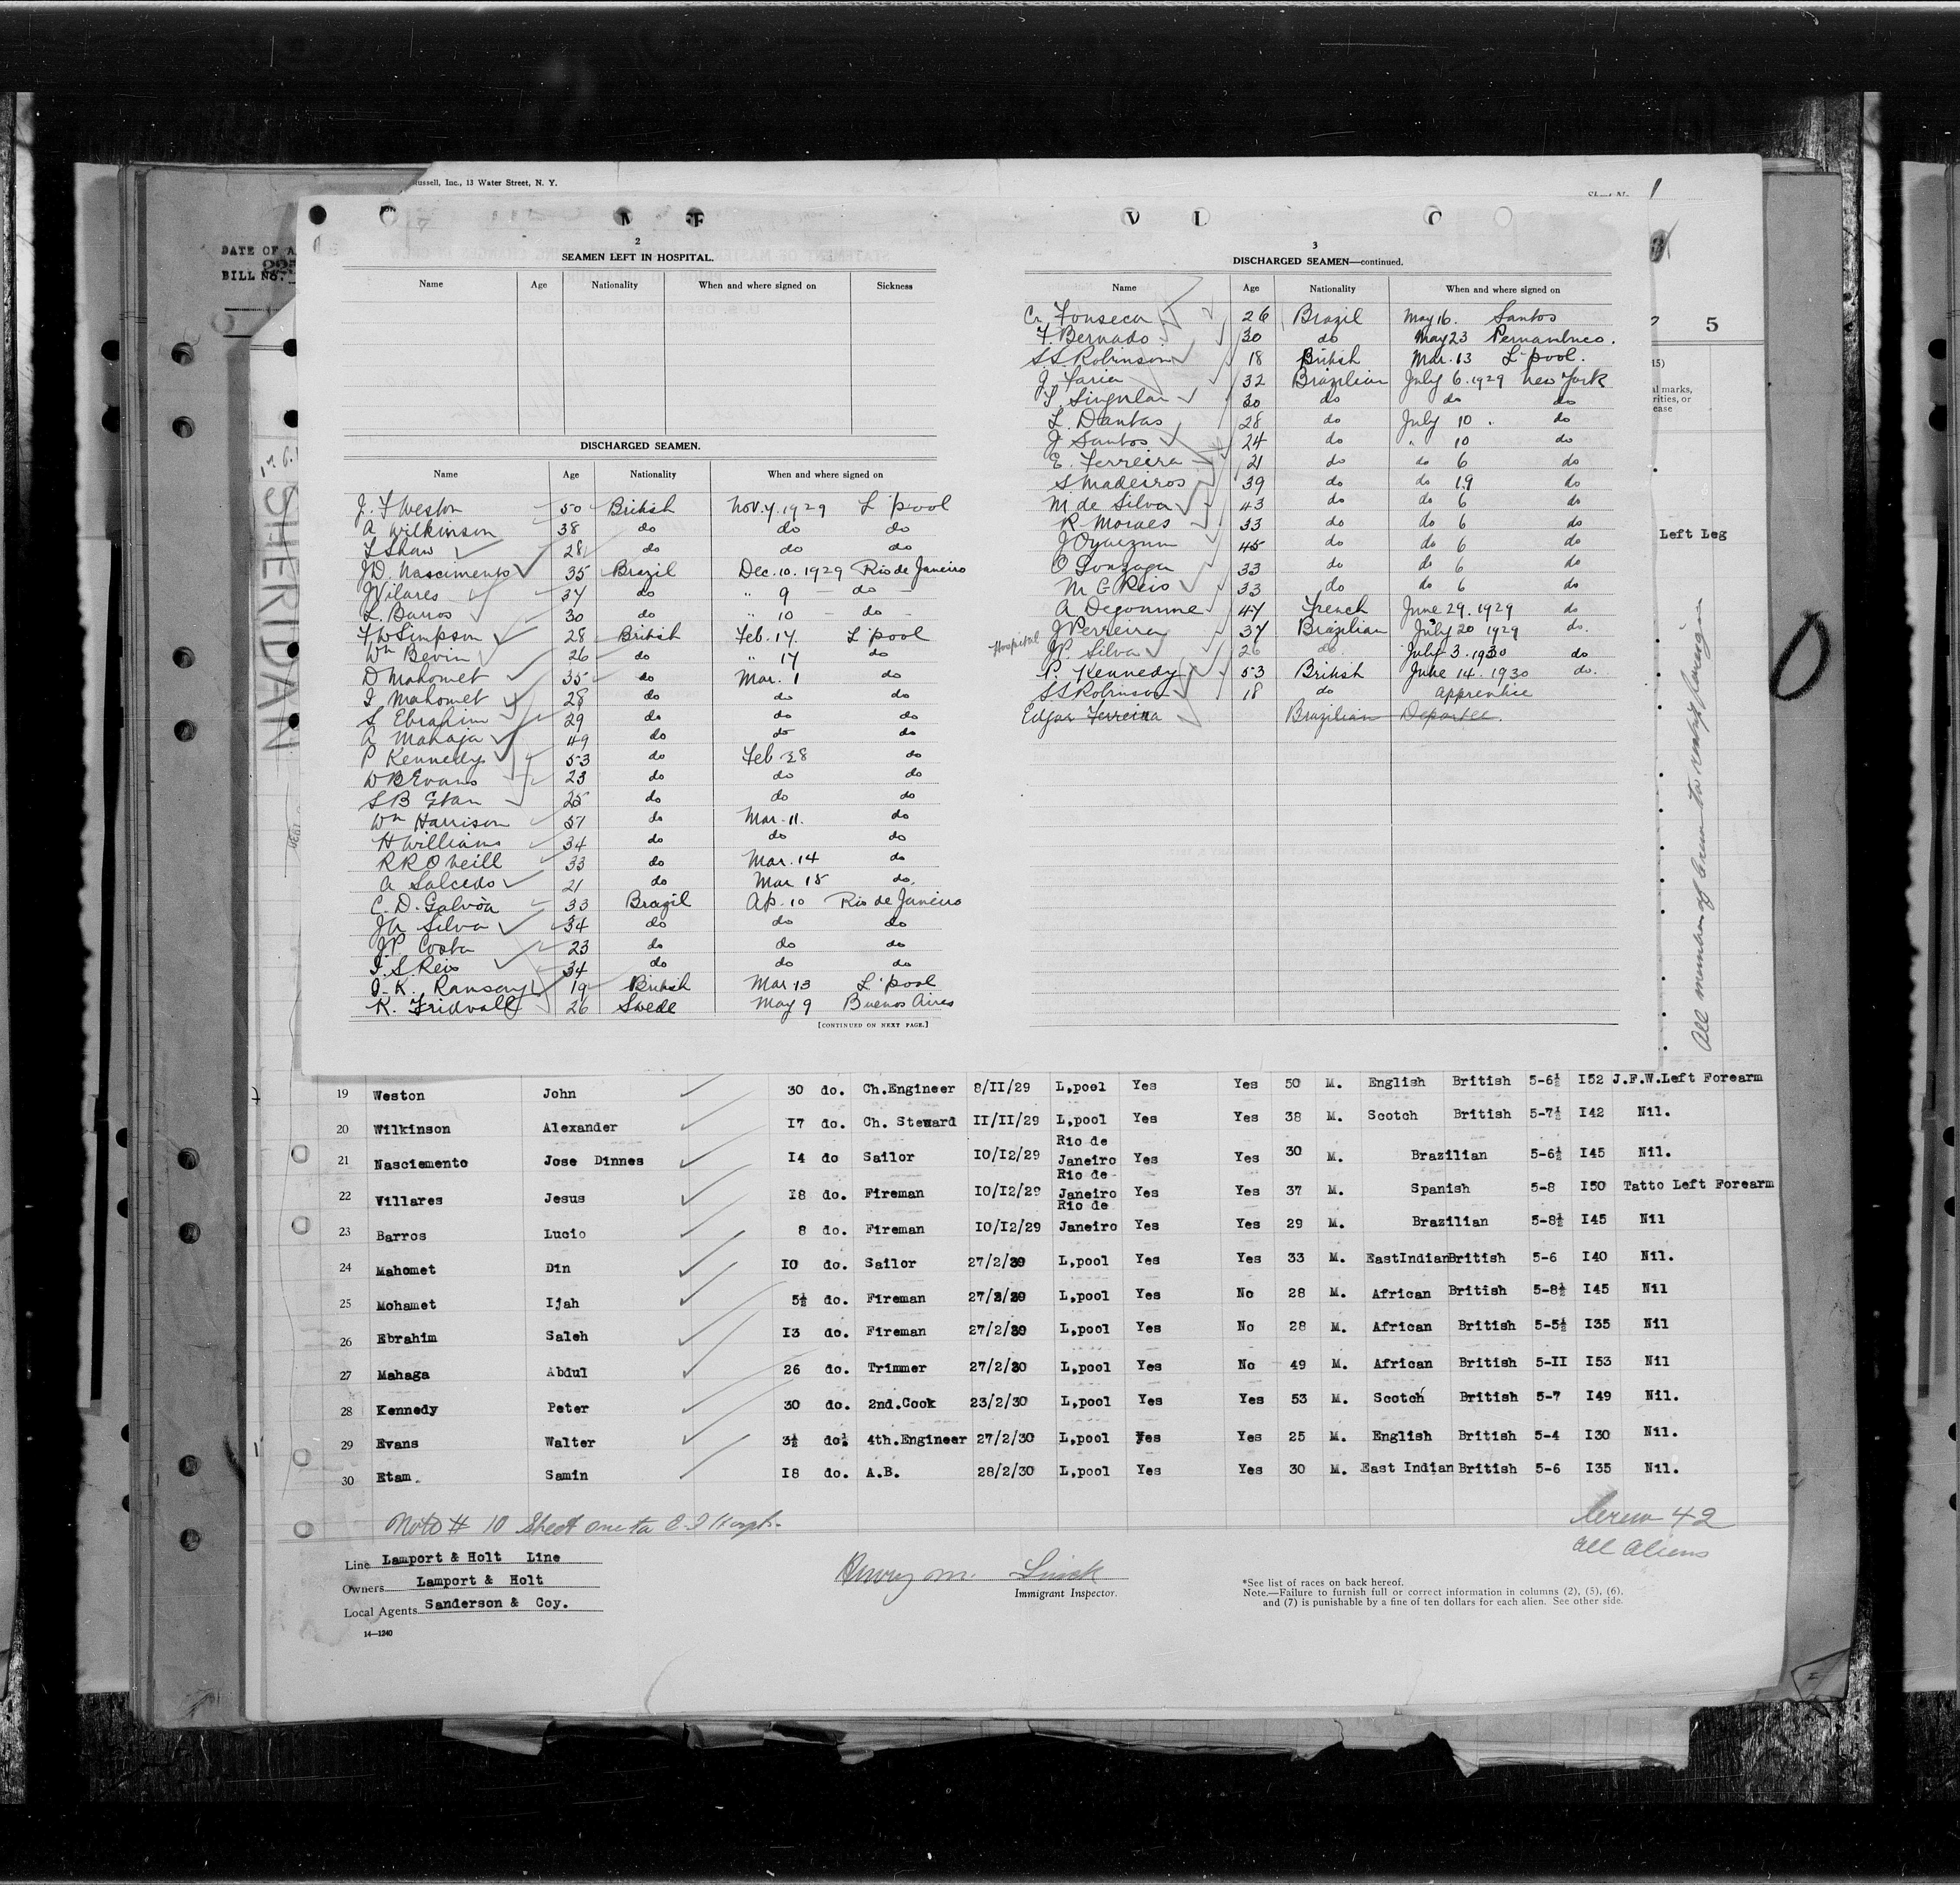 Russell, Inc., 13 Water Street, N. Y.
1
DATE OF A
BILL No.
SHERIDAN
5
2
SEAMEN LEFT IN HOSPITAL.
Name Age Nationality When and where signed on Sickness
DISCHARGED SEAMEN.
Name Age Nationality When and where signed on
J. F Weston 50 British Nov. 7. 1929 L'pool
A Wilkinson 38 do do do
F Shaw 28 do do do
J D. Nascimento 35 Brazil Dec. 10. 1929 Rio de Janeiro
J Vilares 37 do " 9 — do —
L. Barros 30 do " 10 — do —
F W Simpson 28 British Feb. 17. L'pool
Wm Bevin 26 do " 17 do
D Mahomet 35 do Mar. 1 do
I Mahomet 28 do do do
S Ebrahim 29 do do do
A Mahaga 49 do do do
P Kennedy 53 do Feb 28 do
W B Evans 23 do do do
S B Etan 25 do do do
Wm Harrison 37 do Mar. 11. do
H Williams 34 do do do
R R O Neill 33 do Mar. 14 do
A Salcedo 21 do Mar 15 do
C. D. Galvoa 33 Brazil Ap. 10 Rio de Janeiro
J A Silva 34 do do do
J P. Costa 23 do do do
I. S. Reis 34 do do do
J. K. Ramsay 19 British Mar 13 L'pool
K. Fridvall 26 Swede May 9 Buenos Aires
[CONTINUED ON NEXT PAGE.]
3
DISCHARGED SEAMEN—continued.
Name Age Nationality When and where signed on
Fonseca 26 Brazil May 16. Santos
F. Bernado 30 do May 23 Pernambuco.
S. S. Robinson 18 British Mar. 13 L'pool.
J. Faria 32 Brazilian July 6. 1929 New York
Singular 30 do do do
L. Dantas 28 do July 10 . do
J Santos 24 do " 10 do
E. Ferreira 21 do do 6 do
S Madeiros 39 do do 19 do
M. de Silva 43 do do 6 do
R Moraes 33 do do 6 do
J Oyarzun 45 do do 6 do
O Gonzaga 33 do do 6 do
M G Reis 33 do do 6 do
A Degomme 47 French June 29. 1929 do
J Perreira 37 Brazilian July 20 1929 do.
Hospital J P. Silva 26 do July 3. 1930 do
P. Kennedy 53 British June 14. 1930 do.
S S Robinson 18 do Apprentice
Edgar Ferreira Brazilian Deportee.
al marks,
rities, or
ease
Left Leg
All members of Crew to reship foreign
19 Weston John 30 do. Ch.Engineer 8/II/29 L,pool Yes Yes 50 M. English British 5-6½ I52 J.F.W.Left Forearm
20 Wilkinson Alexander I7 do. Ch. Steward II/II/29 L,pool Yes Yes 38 M. Scotch British 5-7½ I42 Nil.
21 Nasciemento Jose Dinnes I4 do Sailor IO/I2/29 Rio de Janeiro Yes Yes 30 M. Brazilian 5-6½ I45 Nil.
22 Villares Jesus I8 do. Fireman IO/I2/29 Rio de Janeiro Yes Yes 37 M. Spanish 5-8 I50 Tatto Left Forearm
23 Barros Lucio 8 do. Fireman IO/I2/29 Rio de Janeiro Yes Yes 29 M. Brazilian 5-8½ I45 Nil
24 Mahomet Din IO do. Sailor 27/2/30 L,pool Yes Yes 33 M. EastIndian British 5-6 I40 Nil.
25 Mohamet Ijah 5½ do. Fireman 27/2/30 L,pool Yes No 28 M. African British 5-8½ I45 Nil
26 Ebrahim Saleh I3 do. Fireman 27/2/30 L,pool Yes No 28 M. African British 5-5½ I35 Nil
27 Mahaga Abdul 26 do. Trimmer 27/2/30 L,pool Yes No 49 M. African British 5-II I53 Nil
28 Kennedy Peter 30 do. 2nd.Cook 23/2/30 L,pool Yes Yes 53 M. Scotch British 5-7 I49 Nil.
29 Evans Walter 3½ do. 4th.Engineer 27/2/30 L,pool Yes Yes 25 M. English British 5-4 I30 Nil.
30 Etam. Samin I8 do. A.B. 28/2/30 L,pool Yes Yes 30 M. East Indian British 5-6 I35 Nil.
Note # 10 Sheet one to E.I Hospt.
Crew 42
All Aliens
Line Lamport & Holt Line
Owners Lamport & Holt
Local Agents Sanderson & Coy.
14—1240
Immigrant Inspector.
*See list of races on back hereof.
Note.—Failure to furnish full or correct information in columns (2), (5), (6),
and (7) is punishable by a fine of ten dollars for each alien. See other side.